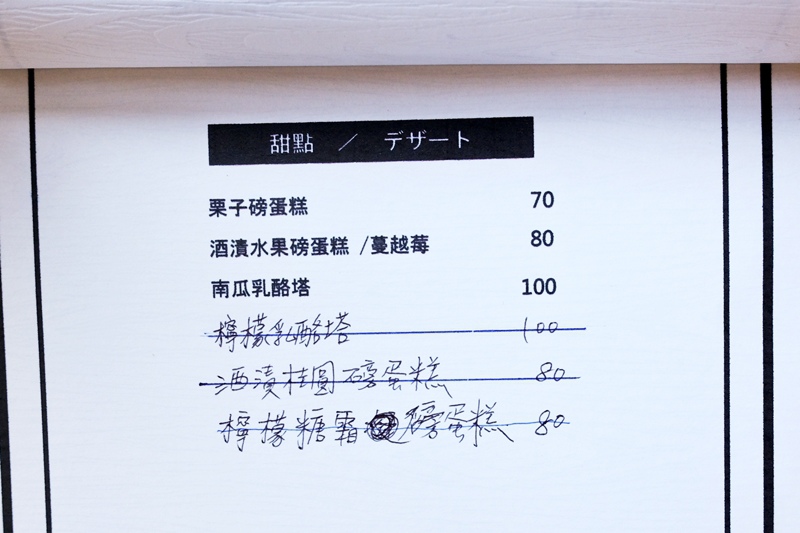 甜點 ／ デザート
栗子磅蛋糕 70
酒漬水果磅蛋糕 /蔓越莓 80
南瓜乳酪塔 100
檸檬乳酪塔 100
酒漬桂圓磅蛋糕 80
檸檬糖霜磅蛋糕 80